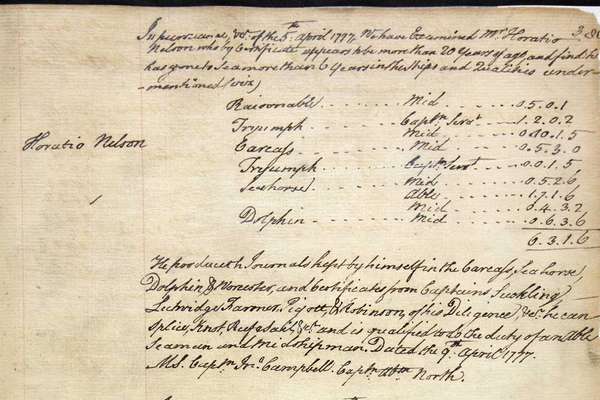 In pursuance, &c. of the 5th. April 1777, We have Examined Mr. Horatio
Nelson who by Certificate appears to be more than 20 Years of age, and find he
has gone to Sea more than 6 Years in the Ships and Qualities under-
mentioned (vizt.)
Raisonnable Mid 0.5.0.1
Triumph Captns. Servt 1.2.0.2
Mid 0.10.1.5
Horatio Nelson
Carcass Mid 0.5.3.0
Triumph Captns. Servt 0.0.1.5
Seahorse Mid 0.5.2.6
Able 1.7.1.6
Mid 0.4.3.2
Dolphin Mid 0.6.3.6
6.3.1.6
He produceth Journals kept by himself in the Carcass, Seahorse,
Dolphin, & Worcester, and Certificates from Captains Suckling,
Lutwidge, Farmer, Pigott, & Robinson, of his Diligence, &c. he can
Splice, Knot, Reef a Sail, &c. and is qualified to do the duty of an Able
Seaman and Midshipman. Dated the 9th. April 1777.
MS. Captn. Jno. Campbell. Captn. Abm. North.